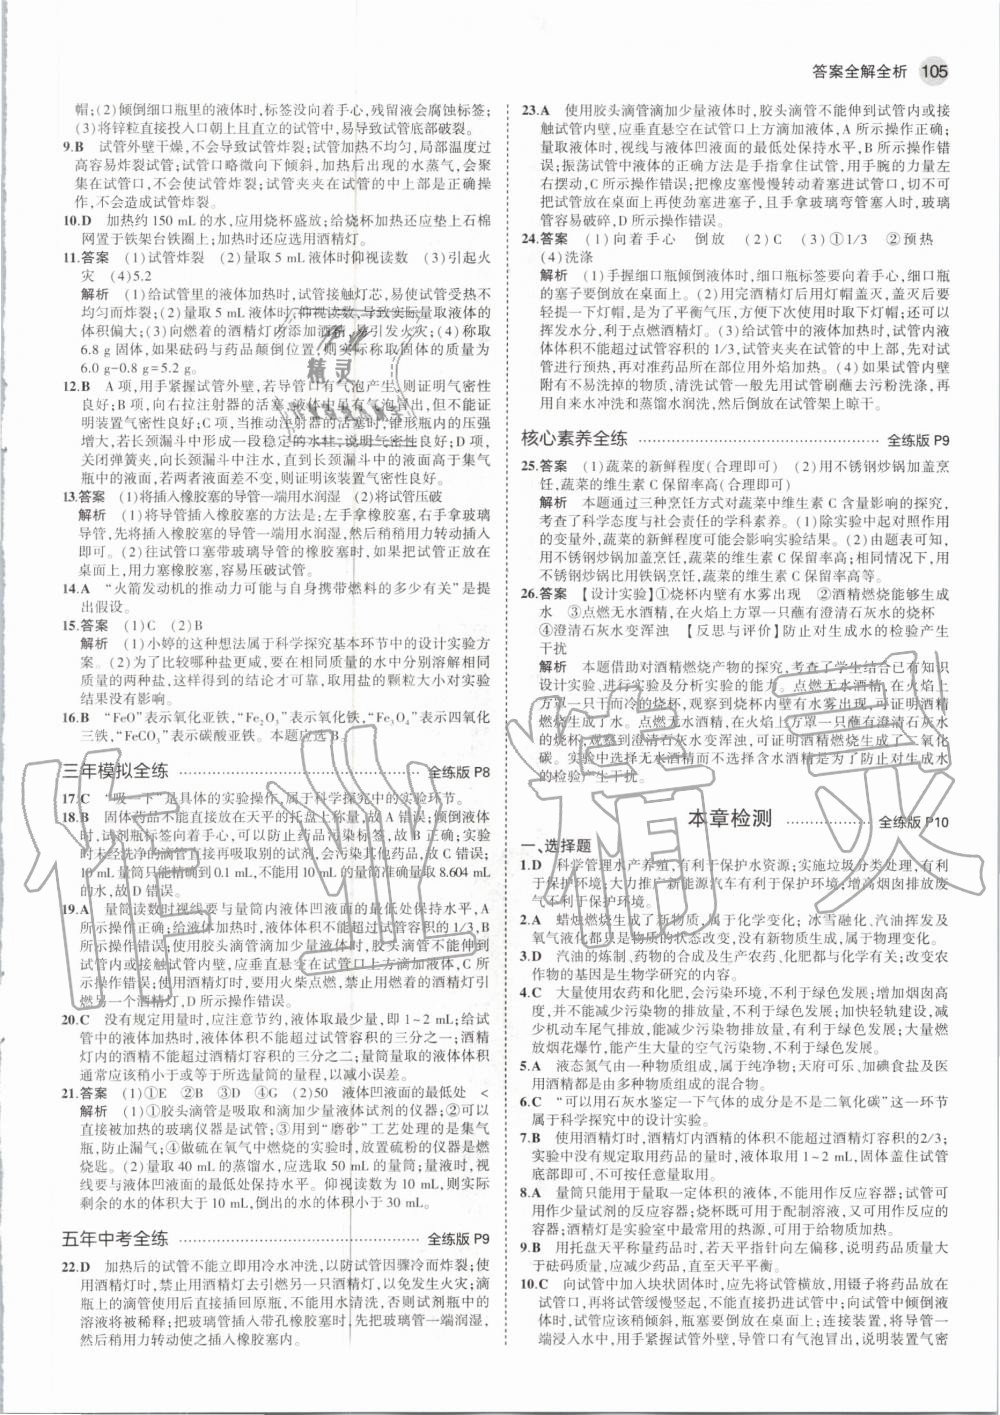 答案全解全析 105
帽;(2)倾倒细口瓶里的液体时,标签没向着手心,残留液会腐蚀标签;
(3)将锌粒直接投入口朝上且直立的试管中,易导致试管底部破裂。
9.B 试管外壁干燥,不会导致试管炸裂;试管加热不均匀,局部温度过
高容易炸裂试管;试管口略微向下倾斜,加热后出现的水蒸气,会聚
集在试管口,不会使试管炸裂;试管夹夹在试管的中上部是正确操
作,不会造成试管炸裂。
10.D 加热约 150 mL 的水,应用烧杯盛放;给烧杯加热还应垫上石棉
网置于铁架台铁圈上;加热时还应选用酒精灯。
11.答案 (1)试管炸裂 (2)量取 5 mL 液体时仰视读数 (3)引起火
灾 (4)5.2
解析 (1)给试管里的液体加热时,试管接触灯芯,易使试管受热不
均匀而炸裂;(2)量取 5 mL 液体时仰视读数,导致实际量取液体的
体积偏大;(3)向燃着的酒精灯内添加酒精,易引发火灾;(4)称取
6.8 g 固体,如果砝码与药品颠倒位置,则实际称取固体的质量为
6.0 g-0.8 g=5.2 g。
12.B A 项,用手紧握试管外壁,若导管口有气泡产生,则证明气密性
良好;B 项,向右拉注射器的活塞,液体中虽有气泡冒出,但不能证
明装置气密性良好;C 项,当推动注射器活塞时,锥形瓶内的压强
增大,若长颈漏斗中形成一段稳定的水柱,说明气密性良好;D 项,
关闭弹簧夹,向长颈漏斗中加水至长颈漏斗中的液面高于集气
瓶中的液面,若两者液面差不变,则证明该装置气密性良好。
13.答案 (1)将插入橡胶塞的导管一端用水润湿 (2)将试管压破
解析 (1)将导管插入橡胶塞的方法是:左手拿橡胶塞,右手拿玻璃
导管,先将插入橡胶塞的导管一端用水润湿,然后稍稍用力转动插入
即可。(2)往试管口塞带玻璃导管的橡胶塞时,如果把试管正放在
桌面上,用力塞橡胶塞,容易压破试管。
14.A “火箭发动机的推动力可能与自身携带燃料的多少有关”是提
出假设。
15.答案 (1)C (2)B
解析 (1)小婷的这种想法属于科学探究基本环节中的设计实验方
案。(2)为了比较哪种盐更咸,要在同质量的水中分别溶解相同
质量的两种盐,这样得到的结论才可靠,取用盐的颗粒大小对实验
结果没有影响。
16.B “FeO”表示氧化亚铁,“Fe₂O₃”表示氧化铁,“Fe₃O₄”表示四氧化
三铁,“FeCO₃”表示碳酸亚铁。本题应选 B。
三年模拟全练 全练版 P8
17.C “吸一下”是具体的实验操作,属于科学探究中的实验环节。
18.B 固体药品不能直接放在天平的托盘上称量,故 A 错误;倾倒液
时,试剂瓶标签向着手心,可以防止药品污染标签,故 B 正确;实验
时未经洗净的滴管直接再吸取别的试剂,会污染其他药品,故 C 错
误;10 mL 量筒只能精确到 0.1 mL,不能用 10 mL 的量筒准确量取 8.604 mL
的水,故 D 错误。
19.A 量筒读数时视线要与量筒内液体凹液面的最低处保持水平,A
所示操作正确;给液体加热时,液体体积不能超过试管容积的 1/3,B
所示操作错误;使用胶头滴管滴加少量液体时,胶头滴管不能伸到
试管内或接触试管内壁,应垂直悬空在试管口上方滴加液体,C 所
示操作错误;使用酒精灯时,要用火柴点燃,禁止用燃着的酒精灯引
燃另一个酒精灯,D 所示操作错误。
20.C 没有规定用量时,应注意节约,液体取最少量,即 1~2 mL;给试
管中的液体加热,液体体积不能超过试管容积的三分之一;酒精
灯内的酒精不能超过酒精灯容积的三分之二;量筒量取的液体体积
应该稍小于或等于所选量筒的量程,以减小误差。
21.答案 (1)①E ②B ③D ④G (2)50 液体凹液面的最低处 <
解析 (1)①胶头滴管是吸取和滴加少量液体试剂的仪器;②可以
直接被加热的玻璃仪器是试管;③用到“磨砂”工艺处理的是集气
瓶,防止漏气;④做硫在氧气中燃烧的实验时,放置硫粉的仪器是燃
烧匙。(2)量取 40 mL 的蒸馏水,应选取 50 mL 的量筒;量液时,视
线要与液体凹液面的最低处保持水平。仰视读数为 10 mL,则实际
剩余的水的体积大于 10 mL,倒出的水的体积小于 30 mL。
五年中考全练 全练版 P9
22.D 加热后的试管不能立即用冷水冲洗,以防试管骤冷而炸裂;使
用酒精灯时,禁止用酒精灯去引燃另一只酒精灯,以免引起火灾;滴
瓶上的滴管使用后直接插回原瓶,不能用水清洗,否则试剂瓶中的
溶液将被稀释;把玻璃管插入带孔橡胶塞时,先把玻璃管一端润湿,
然后稍用力转动使之插入橡胶塞内。
23.A 使用胶头滴管滴加少量液体时,胶头滴管不能伸到试管内或接
触试管内壁,应垂直悬空在试管口上方滴加液体,A 所示操作正确;
量取液体时,视线与液体凹液面的最低处保持水平,B 所示操作错
误;振荡试管中液体的正确方法是手指拿住试管,用手腕的力量左
右摆动,C 所示操作错误;把橡皮塞慢慢转动着塞进试管口,切不可
把试管放在桌面上再使劲塞进塞子,且手拿玻璃弯管塞入时,玻璃
管容易破碎,D 所示操作错误。
24.答案 (1)向着手心 倒放 (2)C (3)①1/3 ②预热
(4)洗涤
解析 (1)手握细口瓶倾倒液体时,细口瓶标签要向着手心,细口瓶
的塞子要倒放在桌面上。(2)用完酒精灯后用灯帽盖灭,盖灭后要
轻提一下灯帽,是为了平衡气压,方便下次使用时取下灯帽;还可以
挥发水分,利于点燃酒精灯。(3)给试管中的液体加热时,试管内液
体体积不能超过试管容积的 1/3,试管夹夹在试管的中上部,先对试
管进行预热,再对准药品所在部位用外焰加热。(4)如果试管内壁
附有不易洗掉的物质,清洗试管一般先用试管刷蘸去污粉洗涤,再
用自来水冲洗和蒸馏水润洗,然后倒放在试管架上晾干。
核心素养全练 全练版 P9
25.答案 (1)蔬菜的新鲜程度(合理即可) (2)用不锈钢炒锅加盖烹
饪,蔬菜的维生素 C 保留率高(合理即可)
解析 本题通过三种烹饪方式对蔬菜中维生素 C 含量影响的探究,
考查了科学态度与社会责任的学科素养。(1)除实验中起对照作用
的变量外,蔬菜的新鲜程度可能会影响实验结果。(2)由题表可知,
用不锈钢炒锅加盖烹饪,蔬菜的维生素 C 保留率高;相同情况下,用
不锈钢炒锅比用铁锅烹饪,蔬菜的维生素 C 保留率高等。
26.答案 【设计实验】①烧杯内壁有水雾出现 ②酒精燃烧能够生成
水 ③点燃无水酒精,在火焰上方罩一只蘸有澄清石灰水的烧杯
④澄清石灰水变浑浊 【反思与评价】防止对生成水的检验产生
干扰
解析 本题借助对酒精燃烧产物的探究,考查了学生结合已有知识
设计实验、进行实验及分析实验的能力。点燃无水酒精,在火焰上
方罩一只干冷的烧杯,观察到烧杯内壁有水雾出现,可证明酒精
燃烧生成了水。点燃无水酒精,在火焰上方罩一只蘸有澄清石灰水
的烧杯,观察到澄清石灰水变浑浊,可证明酒精燃烧生成了二氧化
碳。实验中选择无水酒精而不选择含水酒精是为了防止对生成水
的检验产生干扰。
本章检测 全练版 P10
一、选择题
1.D 科学管理水产养殖,有利于保护水资源;实施垃圾分类处理,有利
于保护环境;大力推广新能源汽车有利于保护环境;增高烟囱排放废
气不利于保护环境。
2.A 蜡烛燃烧生成了新物质,属于化学变化;冰雪融化、汽油挥发及
氧气液化都只是物质的状态改变,没有新物质生成,属于物理变化。
3.D 汽油的炼制、药物的合成及生产农药、化肥都与化学有关;改变农
作物的基因是生物学研究的内容。
4.C 大量使用农药和化肥,会污染环境,不利于绿色发展;增加烟囱高
度,并不能减少污染物的排放量,不利于绿色发展;加快轻轨建设,减
少机动车尾气排放,能减少污染物排放量,有利于绿色发展;大量燃
放烟花爆竹,能产生大量的空气污染物,不利于绿色发展。
5.A 液态氮气由一种物质组成,属于纯净物;天府可乐、加碘食盐及医
用酒精都是由多种物质组成的混合物。
6.C “可以用石灰水鉴定一下气体的成分是不是二氧化碳”这一环节
属于科学探究中的设计实验。
7.B 使用酒精灯时,酒精灯内酒精的体积不能超过酒精灯容积的 2/3;
实验中没有规定取用药品的量时,液体取用 1~2 mL,固体盖住试管
底部即可,不可按任意量取用。
8.A 量筒只能用于量取一定体积的液体,不能用作反应容器;试管可
用作少量试剂的反应容器;烧杯既可用于配制溶液,又可用作较大
量试剂的反应容器;酒精灯是实验室中最常用的热源,可用于给物质加热。
9.B 用托盘天平称量药品时,若天平指针向左偏移,说明药品质量大
于砝码质量,应减少药品,直至天平平衡。
10.C 向试管中加入块状固体时,应先将试管横放,用镊子将药品放在
试管口,再将试管缓慢竖起,不能直接丢入试管中;向试管中倾倒液
体时,试剂瓶塞应倒放,瓶塞要倒放在桌面上;连接装置,将导管一
端浸入水中,用手紧握试管外壁,导管口有气泡冒出,说明装置气密
精灵
作业精灵